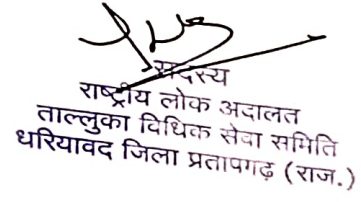 सदस्य
राष्ट्रीय लोक अदालत
ताल्लुका विधिक सेवा समिति
धरियावद जिला प्रतापगढ़ (राज.)